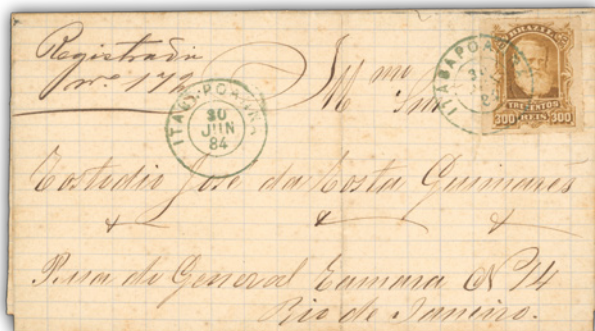 Registrada
nº 172
Illmo Snr
ITABAPOANA
30
JUN
84
ITABAPOANA
84
BRAZIL
TREZENTOS
300 REIS 300
Custodio José da Costa Guimarães
Rua do General Camara Nº 14
Rio de Janeiro.